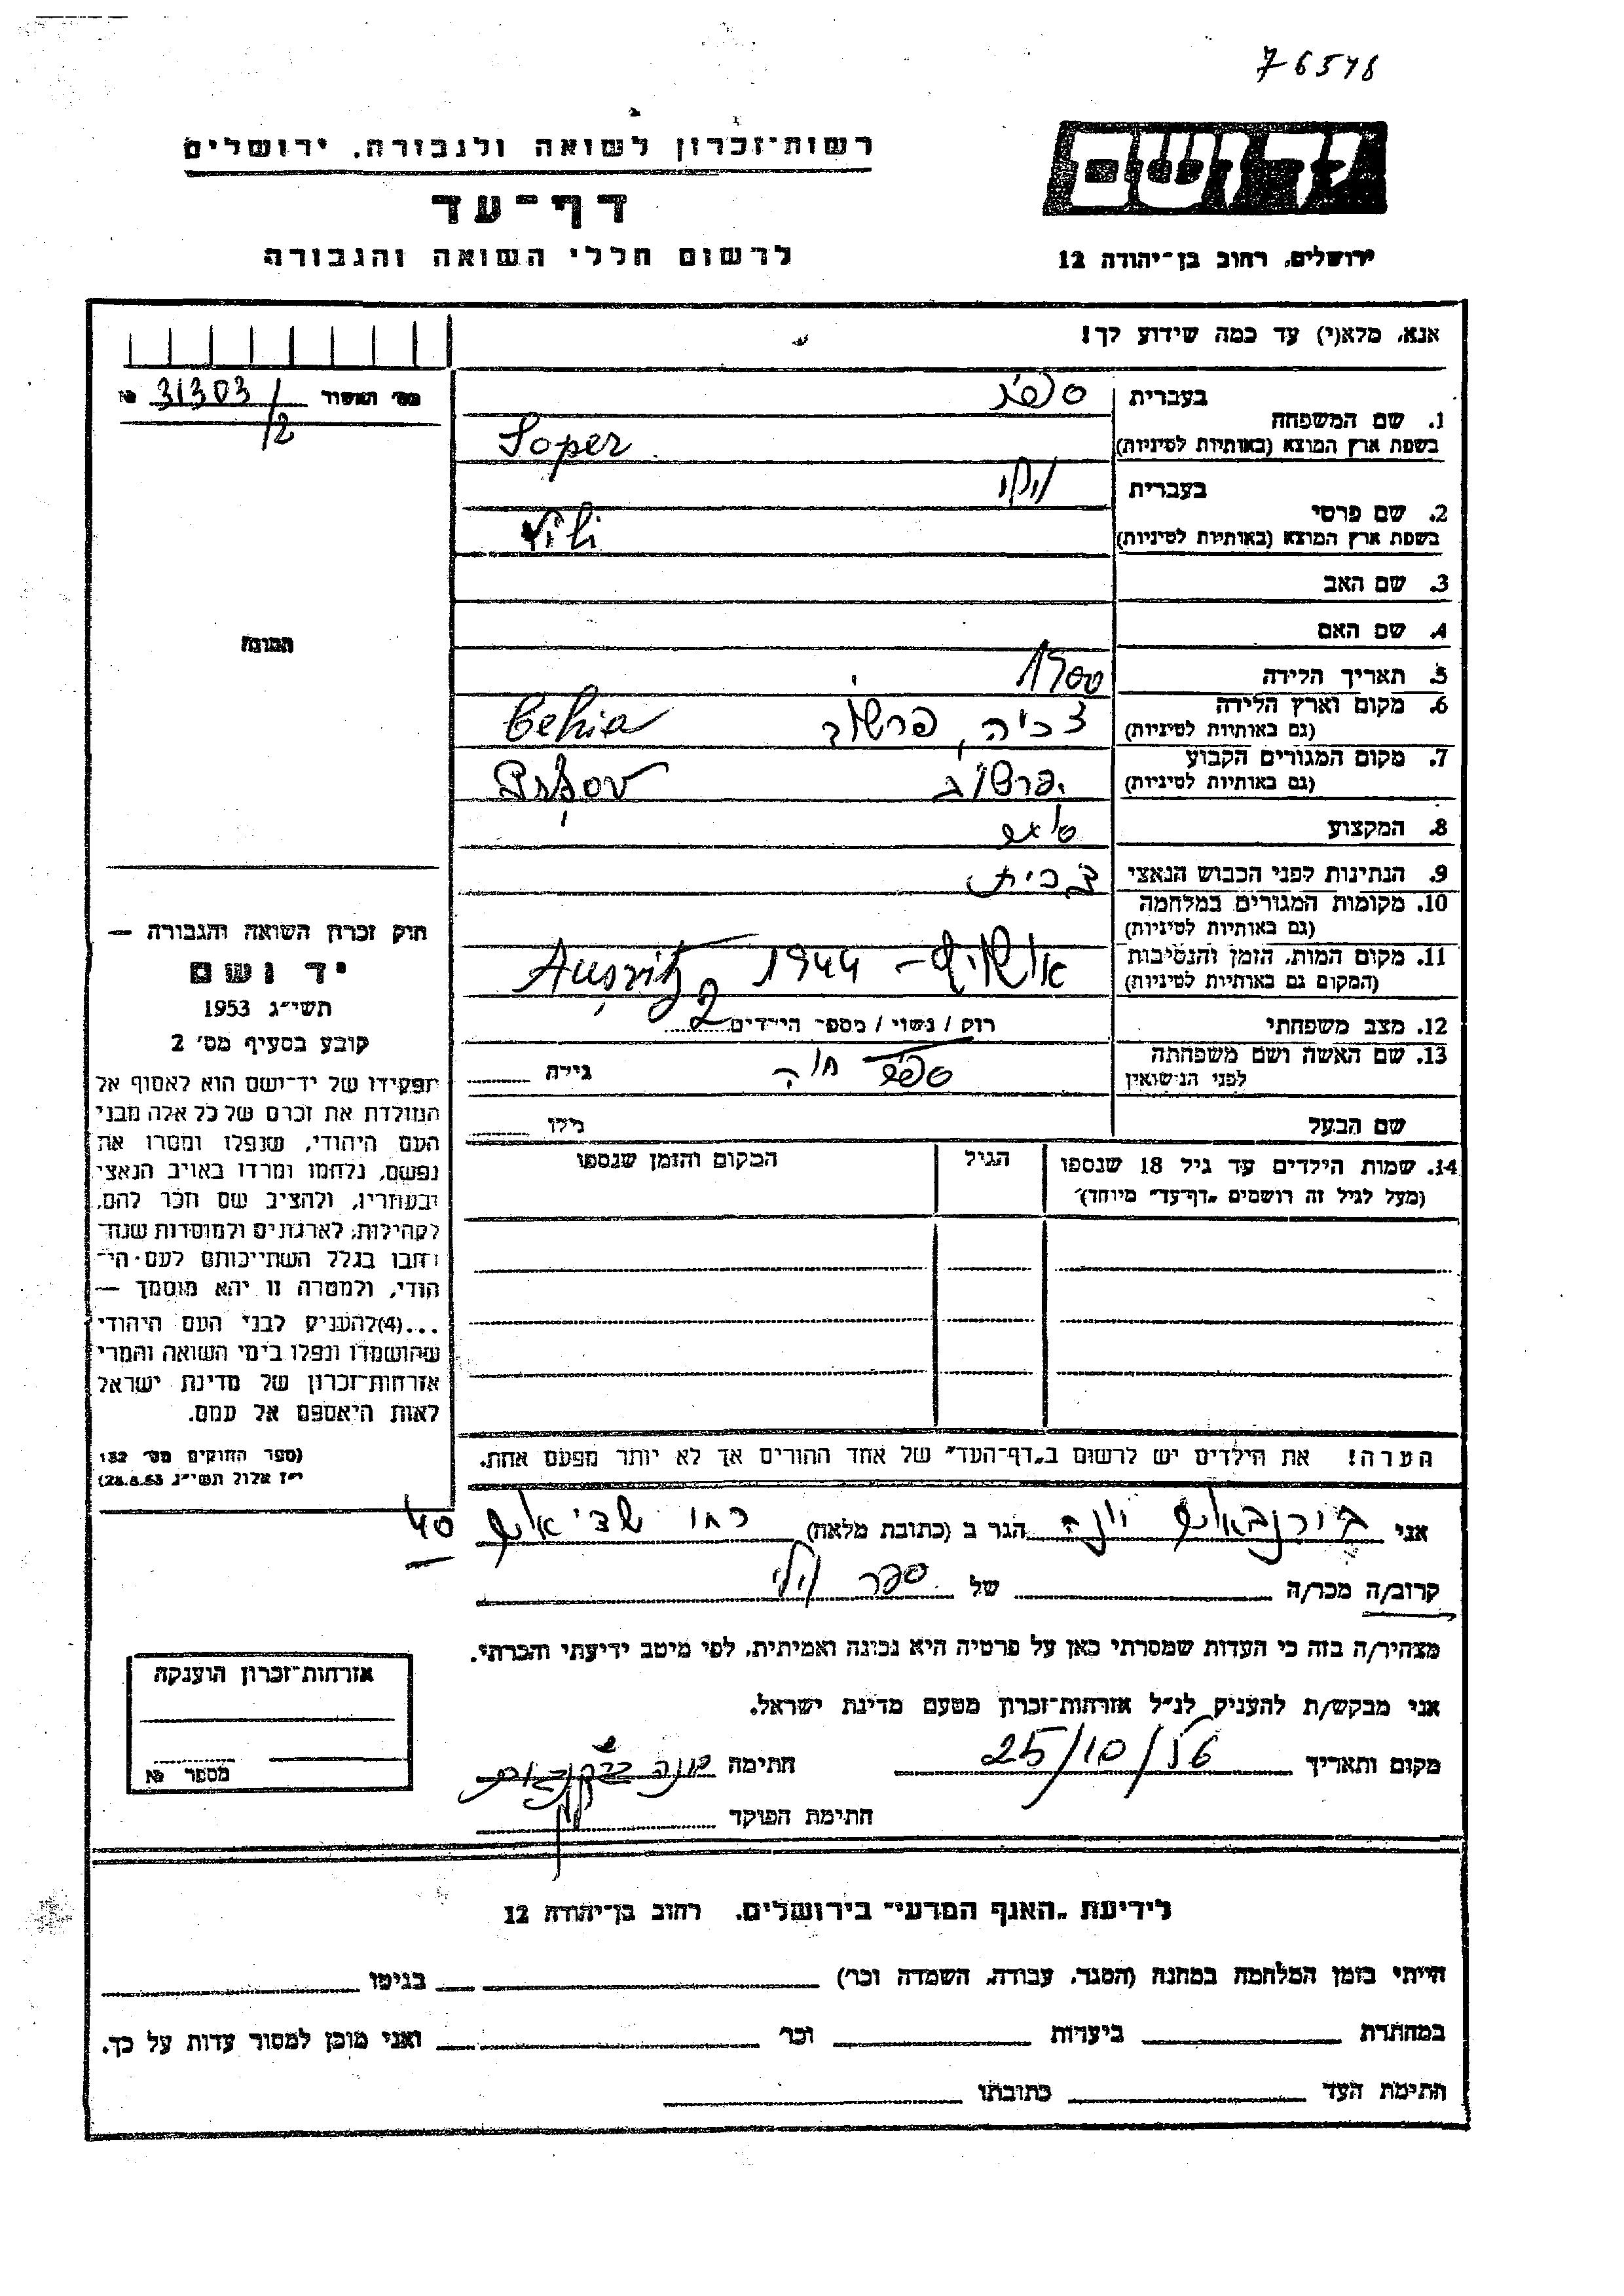 76578
רשות־זכרון לשואה ולגבורה. ירושלים
דף־עד
לרשום חללי השואה והגבורה
ידושם
ירושלים, רחוב בן־יהודה 12
אנא, מלא(י) עד כמה שידוע לך!
מס׳ האשור 31303/ №
12
1. שם המשפחה
בעברית
בשפת ארץ המוצא (באותיות לטיניות)
Soper
2. שם פרטי
בעברית
וילי
בשפת ארץ המוצא (באותיות לטיניות)
Vili
3. שם האב
4. שם האם
5. תאריך הלידה 1900
6. מקום וארץ הלידה
(גם באותיות לטיניות)
צ׳כיה, פרשוב
7. מקום המגורים הקבוע
(גם באותיות לטיניות)
פרשוב
8. המקצוע
9. הנתינות לפני הכבוש הנאצי צ׳כית
10. מקומות המגורים במלחמה
(גם באותיות לטיניות)
11. מקום המות, הזמן והנסיבות
(המקום גם באותיות לטיניות)
1944
12. מצב משפחתי רוק / נשוי / מספר הילדים 2
13. שם האשה ושם משפחתה
לפני הנישואין
חוה
גילה
שם הבעל גילו
14. שמות הילדים עד גיל 18 שנספו
(מעל לגיל זה רושמים „דף־עד״ מיוחד)
הגיל
המקום והזמן שנספו
הערה! את הילדים יש לרשום ב„דף־העד״ של אחד ההורים אך לא יותר מפעם אחת.
התמונה
חוק זכרון השואה והגבורה —
יד ושם
תשי״ג 1953
קובע בסעיף מס׳ 2
תפקידו של יד־ושם הוא לאסוף אל
המולדת את זכרם של כל אלה מבני
העם היהודי, שנפלו ומסרו את
נפשם, נלחמו ומרדו באויב הנאצי
ובעוזריו, ולהציב שם וזכר להם,
לקהילות, לארגונים ולמוסדות שנח־
רבו בגלל השתייכותם לעם הי־
הודי, ולמטרה זו יהא מוסמך —
...(4)להעניק לבני העם היהודי
שהושמדו ונפלו בימי השואה והמרי
אזרחות־זכרון של מדינת ישראל
לאות היאספם אל עמם.
(ספר החוקים מס׳ 132
י״ז אלול תשי״ג 28.8.53)
אני יונה הגר ב (כתובת מלאה) 40
קרוב/ה מכר/ה של ספר וילי
מצהיר/ה בזה כי העדות שמסרתי כאן על פרטיה היא נכונה ואמיתית, לפי מיטב ידיעתי והכרתי.
אני מבקש/ת להעניק לנ״ל אזרחות־זכרון מטעם מדינת ישראל.
מקום ותאריך 25/10/56 חתימה
חתימת הפוקד
אזרחות־זכרון הוענקה
מספר №
לידיעת „האגף המדעי״ בירושלים. רחוב בן־יהודה 12
הייתי בזמן המלחמה במחנה (הסגר, עבודה, השמדה וכר׳) בגיטו
במחתרת ביערות וכר׳ ואני מוכן למסור עדות על כך.
חתימת העד כתובתו